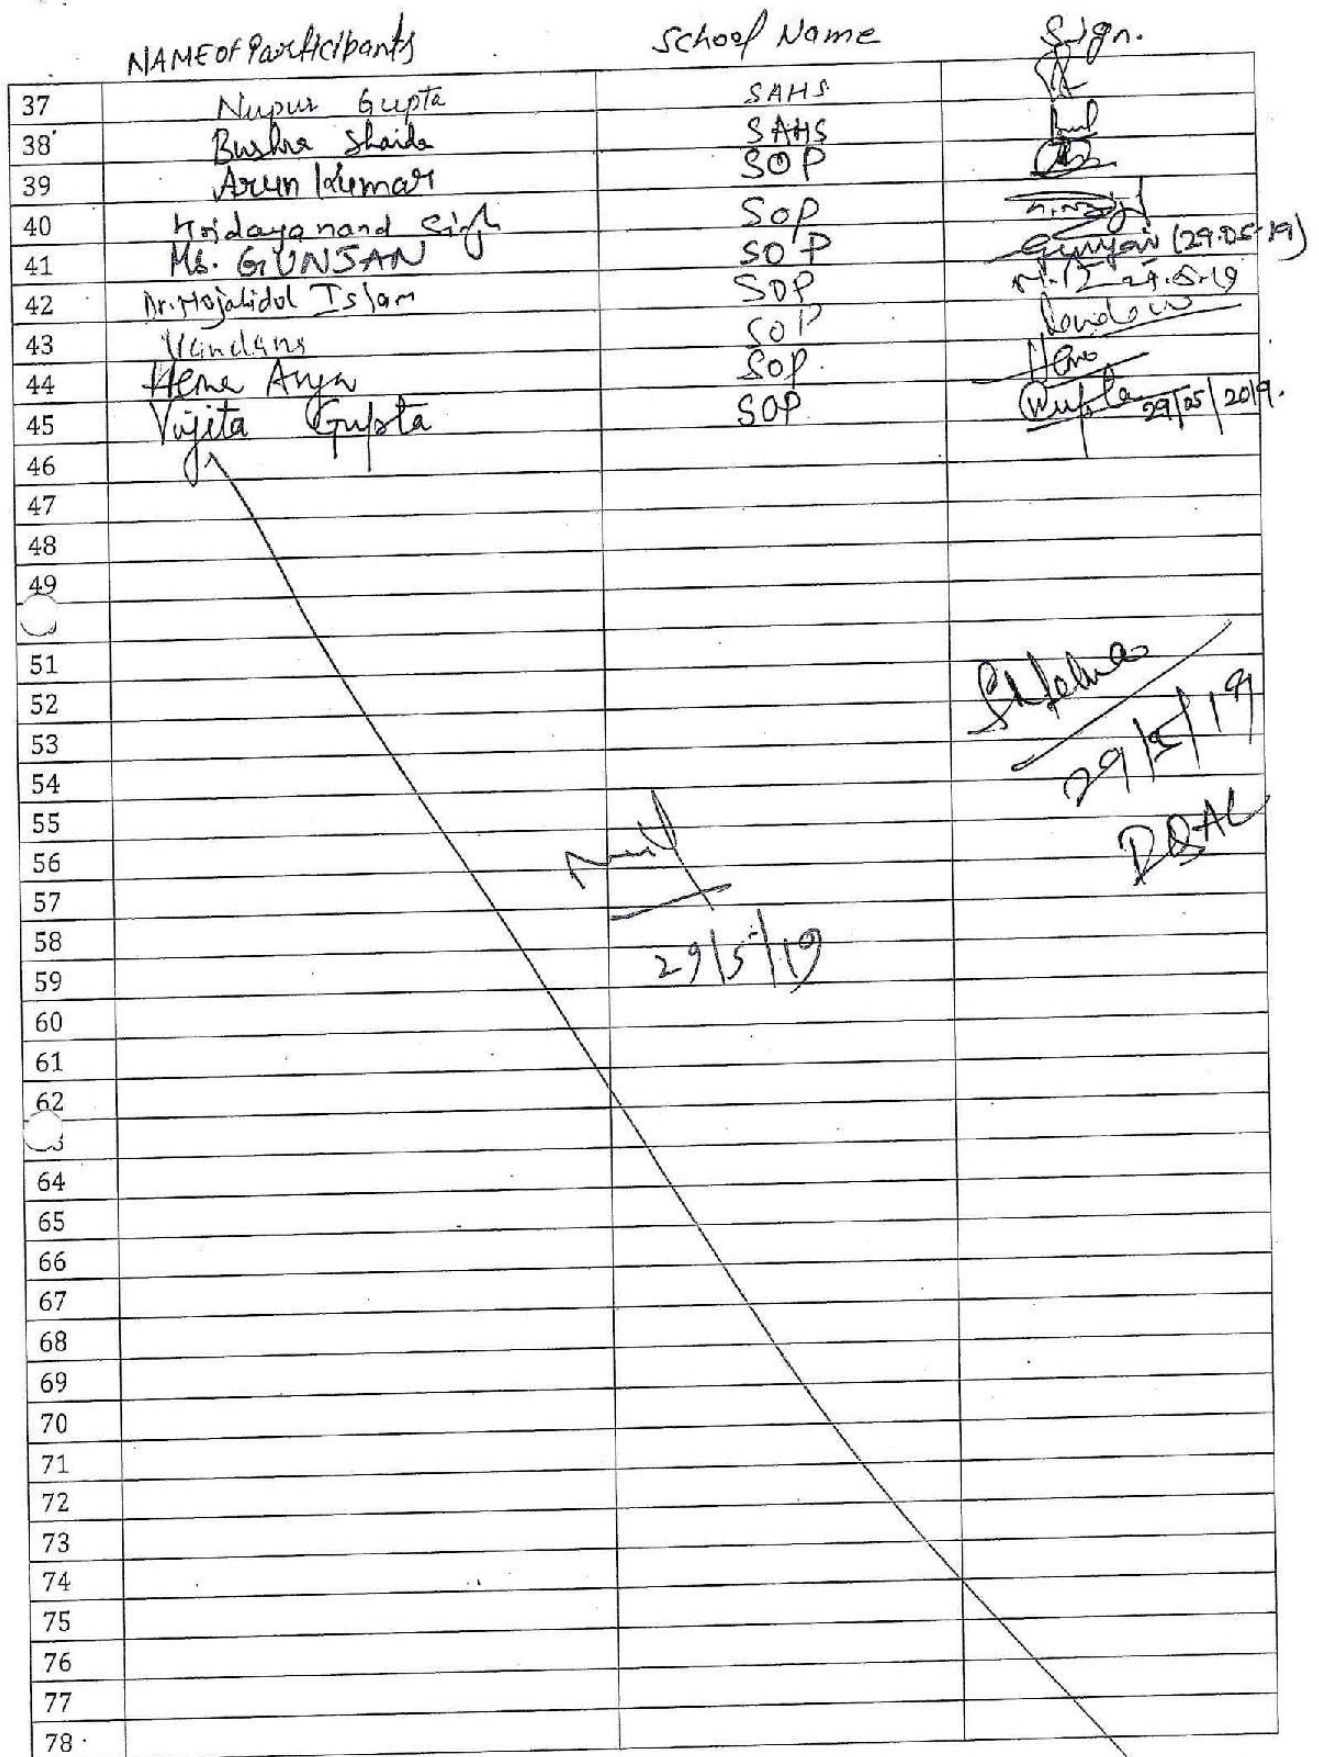 NAME OF Participants School Name Sign.
37 Nupur Gupta SAHS
38 Bushra Shaida SAHS
39 Arun Kumar SOP
40 Hridayanand Singh SOP
41 Ms. GUNJAN SOP Gunjan (29.05.19)
42 Dr. Mojahidul Islam SOP 29.05.19
43 Vandana SOP Vandana
44 Hema Arya SOP. Hema
45 Vijita Gupta SOP VGupta 29/05/2019.
46
47
48
49
51
52
53
29/5/19
54
55
DQAC
56
57
58
29/5/19
59
60
61
62
64
65
66
67
68
69
70
71
72
73
74
75
76
77
78